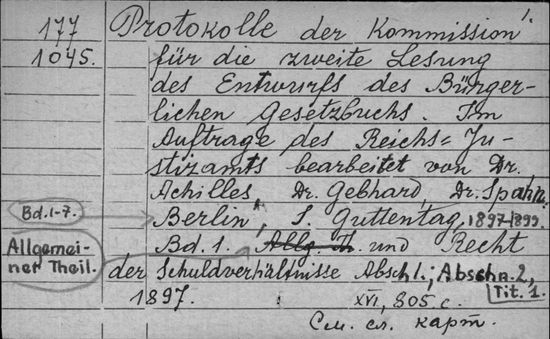 177
1045.
Protokolle der Kommission
für die zweite Lesung
des Entwurfs des Bürger-
lichen Gesetzbuchs. Im
Auftrage des Reichs=Ju-
stizamts bearbeitet von Dr.
Achilles, Dr. Gebhard, Dr. Spahn.
Bd. 1-7.
Berlin, J. Guttentag, 1897/899.
Allgemei-
ner Theil.
Bd. 1. Allg. Th. und Recht
der Schuldverhältnisse Abschl.; Abschn. 2,
Tit. 1.
1897. XVI, 805 с.
См. сл. карт.